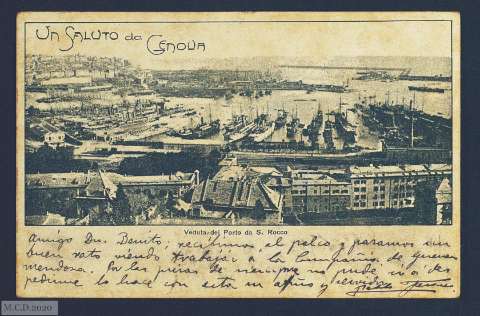 Un Saluto da Genova
Veduta del Porto da S. Rocco
Amigo Dn. Benito; recibimos el palco y pasamos un
buen rato viendo trabajar a la Compañia de Guerrero
Mendoza. Por las prisas de siempre no pude ir a des
pedirme lo hace con esta su afmo y servidor
M.C.D.2020